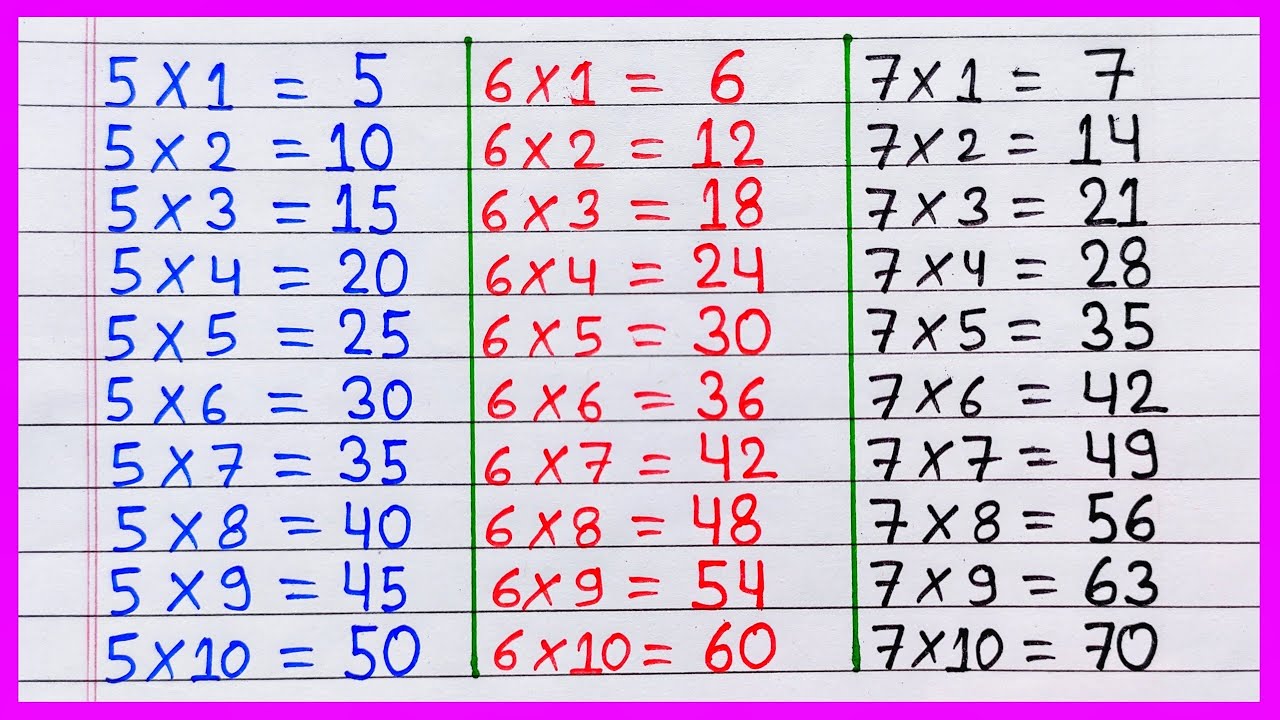 5 X 1 = 5
5 X 2 = 10
5 X 3 = 15
5 X 4 = 20
5 X 5 = 25
5 X 6 = 30
5 X 7 = 35
5 X 8 = 40
5 X 9 = 45
5 X 10 = 50
6 X 1 = 6
6 X 2 = 12
6 X 3 = 18
6 X 4 = 24
6 X 5 = 30
6 X 6 = 36
6 X 7 = 42
6 X 8 = 48
6 X 9 = 54
6 X 10 = 60
7 X 1 = 7
7 X 2 = 14
7 X 3 = 21
7 X 4 = 28
7 X 5 = 35
7 X 6 = 42
7 X 7 = 49
7 X 8 = 56
7 X 9 = 63
7 X 10 = 70